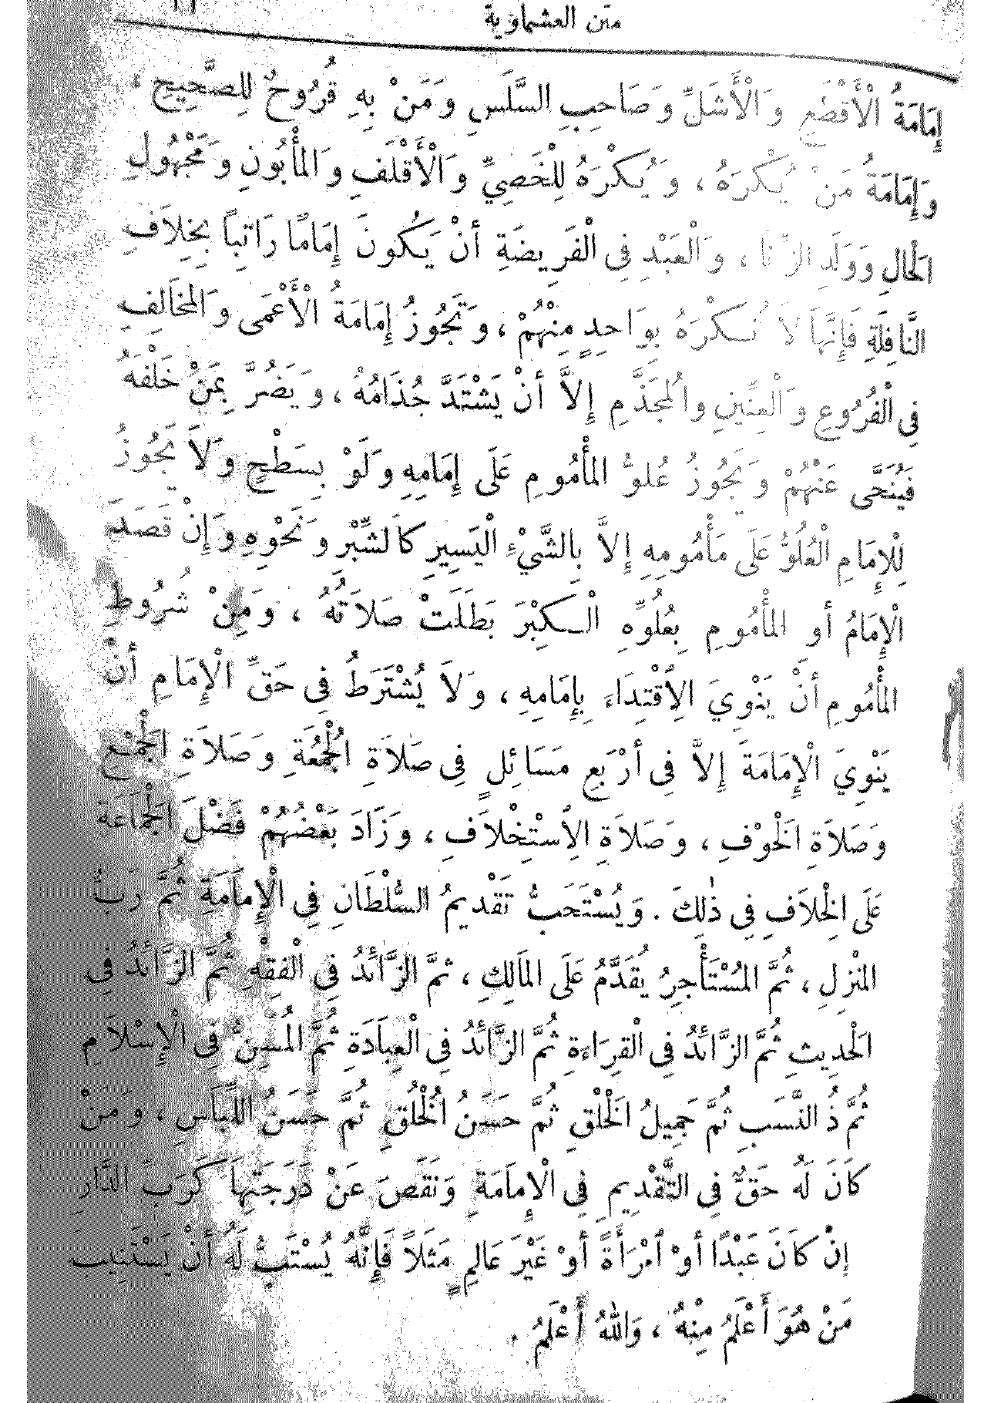 متن العشماوية
إِمَامَةُ الْأَقْطَعِ وَالْأَشَلِّ وَصَاحِبِ السَّلَسِ وَمَنْ بِهِ قُرُوحٌ لِلصَّحِيحِ ،
وَإِمَامَةُ مَنْ يُكْرَهُ ، وَيُكْرَهُ لِلْخَصِيِّ وَالْأَقْلَفِ وَالمأْبُونِ وَمَجْهُولِ
الْحَالِ وَوَلَدِ الزِّنَا ، وَالْعَبْدِ فِى الْفَرِيضَةِ أنْ يَكُونَ إِمَامًا رَاتِباً بِخِلاَفِ
النَّافِلَةِ فَإِنَّهَا لاَ تُكْرَهُ بِوَاحِدٍ مِنْهُمْ ، وَتَجُوزُ إِمَامَةُ الْأَعْمَى وَالمخَالِفِ
فِى الْفُرُوعِ وَالْعِنِّينِ وَالُمجَذَّمِ إِلاَّ أنْ يَشْتَدَّ جُذَامُهُ ، وَيَضُرَّ بِمَنْ خَلْفَهُ
فَيُنَحَّى عَنْهُمْ وَيَجُوزُ عُلوُّ المأْمُومِ عَلَى إِمَامِهِ وَلَوْ بِسَطْحٍ وَلاَ يَجُوزُ
لِلْإِمَامِ الْعُلُوُّ عَلَى مَأْمُومِهِ إِلاَّ بِالشَّيْءِ الْيَسِيرِ كاَلشِّبْرِ وَنَحْوِهِ وَإِنْ قَصَدَ
الْإِمَامُ أو المأْمُومِ بِعُلُوِّهِ الْكِبْرَ بَطَلَتْ صَلاَتُهُ ، وَمِنْ شُرُوطِ
المأْمُومِ أنْ يَنْوِيَ الِاُقْتِدَاءَ بِإِمَامِهِ ، وَلاَ يُشْتَرَطُ فِى حَقِّ الْإِمَامِ أنْ
يَنْوِيَ الْإِمَامَةَ إلاَّ فِى أرْبَعِ مَسَائِلٍ فِى صَلاَةِ الُجْمُعَةِ وَصَلاَةِ الَجْمْعِ
وَصَلاَةِ الَخْوْفِ ، وَصَلاَةِ الِاُسْتِخْلاَفِ ، وَزَادَ بَعْضُهُمْ فَضْلَ الَجْمَاعَةِ
عَلَى الِخْلاَفِ فِى ذٰلِكَ . وَيُسْتَحَبُّ تَقْدِيمُ السُّلْطَانِ فِى الْإِمَامَةِ ثُمَّ رَبُّ
المَنْزِلِ ، ثُمَّ المُسْتَأْجِرُ يُقَدَّمُ عَلَى المَالِكِ ، ثمَّ الزَّائدُ فِى الْفِقْهِ ثُمَّ الزَّائدُ فِى
الَحْدِيثِ ثُمَّ الزَّائدُ فِى الْقِرَاءَةِ ثُمَّ الزَّائدُ فِى الْعِبَادَةِ ثُمَّ الُمْسِنُّ فِى الْإِسْلاَمِ
ثُمَّ ذُ النَّسَبِ ثُمَّ جَمِيلُ الَخْلْقِ ثُمَّ حَسَنُ الُخْلُقِ ثُمَّ حَسَنُ اللِّبَاسِ ، وَمَنْ
كَانَ لَهُ حَقٌّ فِى التَّقْدِيمِ فِى الْإِمَامَةِ وَنَقَصَ عَنْ دَرَجَتِهَا كَرَبِّ الدَّارِ
إنْ كَانَ عَبْدًا أوْ اُمْرَأَةً أوْ غَيْرَ عَالِمٍ مَثَلاً فَإِنَّهُ يُسْتَحَبُّ لَهُ أنْ يَسْتَنِيبَ
مَنْ هُوَ أَعْلَمُ مِنْهُ ، وَاللهُ أَعْلَمُ .